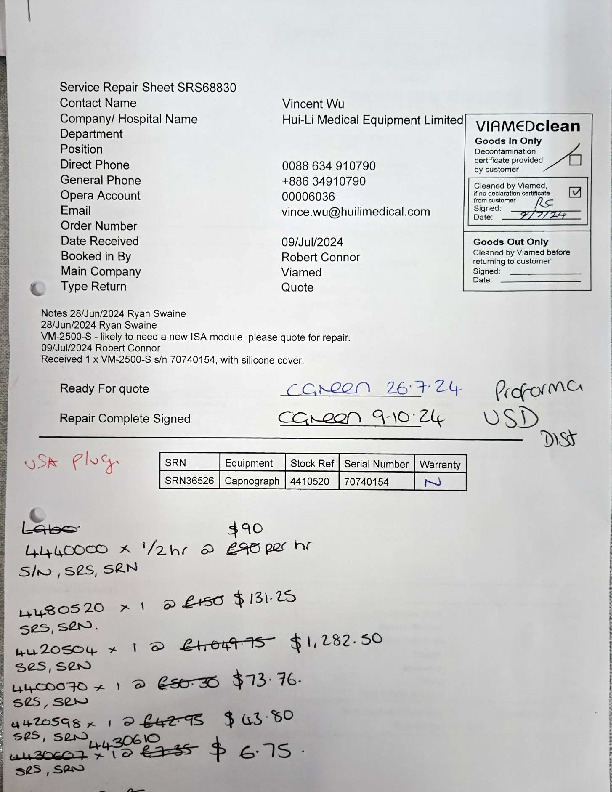 Service Repair Sheet SRS68830
Contact Name Vincent Wu
Company/ Hospital Name Hui-Li Medical Equipment Limited
Department
Position
Direct Phone 0088 634 910790
General Phone +886 34910790
Opera Account 00006036
Email vince.wu@huilimedical.com
Order Number
Date Received 09/Jul/2024
Booked in By Robert Connor
Main Company Viamed
Type Return Quote
VIAMEDclean
Goods In Only
Decontamination
certificate provided
by customer
Cleaned by Viamed,
if no declaration certificate
from customer
Signed: RS
Date: 9/7/24
Goods Out Only
Cleaned by Viamed before
returning to customer
Signed:
Date:
Notes 28/Jun/2024 Ryan Swaine
28/Jun/2024 Ryan Swaine
VM-2500-S - likely to need a new ISA module, please quote for repair.
09/Jul/2024 Robert Connor
Received 1 x VM-2500-S s/n 70740154, with silicone cover.
Ready For quote CGreen 26.7.24.
Repair Complete Signed CGreen 9.10.24
Proforma
USD
Dist
USA Plug.
SRN Equipment Stock Ref Serial Number Warranty
SRN36526 Capnograph 4410520 70740154 N
Labo $90
4440000 x 1/2 hr @ £90 per hr
S/N, SRS, SRN
4480520 x 1 @ £150 $131.25
SRS, SRN.
4420504 x 1 @ £1,049.75 $1,282.50
SRS, SRN
4400070 x 1 @ £50.30 $73.76.
SRS, SRN
4420598 x 1 @ £42.95 $43.80
SRS, SRN 4430610
4430607 x 1 @ £7.35 $6.75.
SRS, SRN